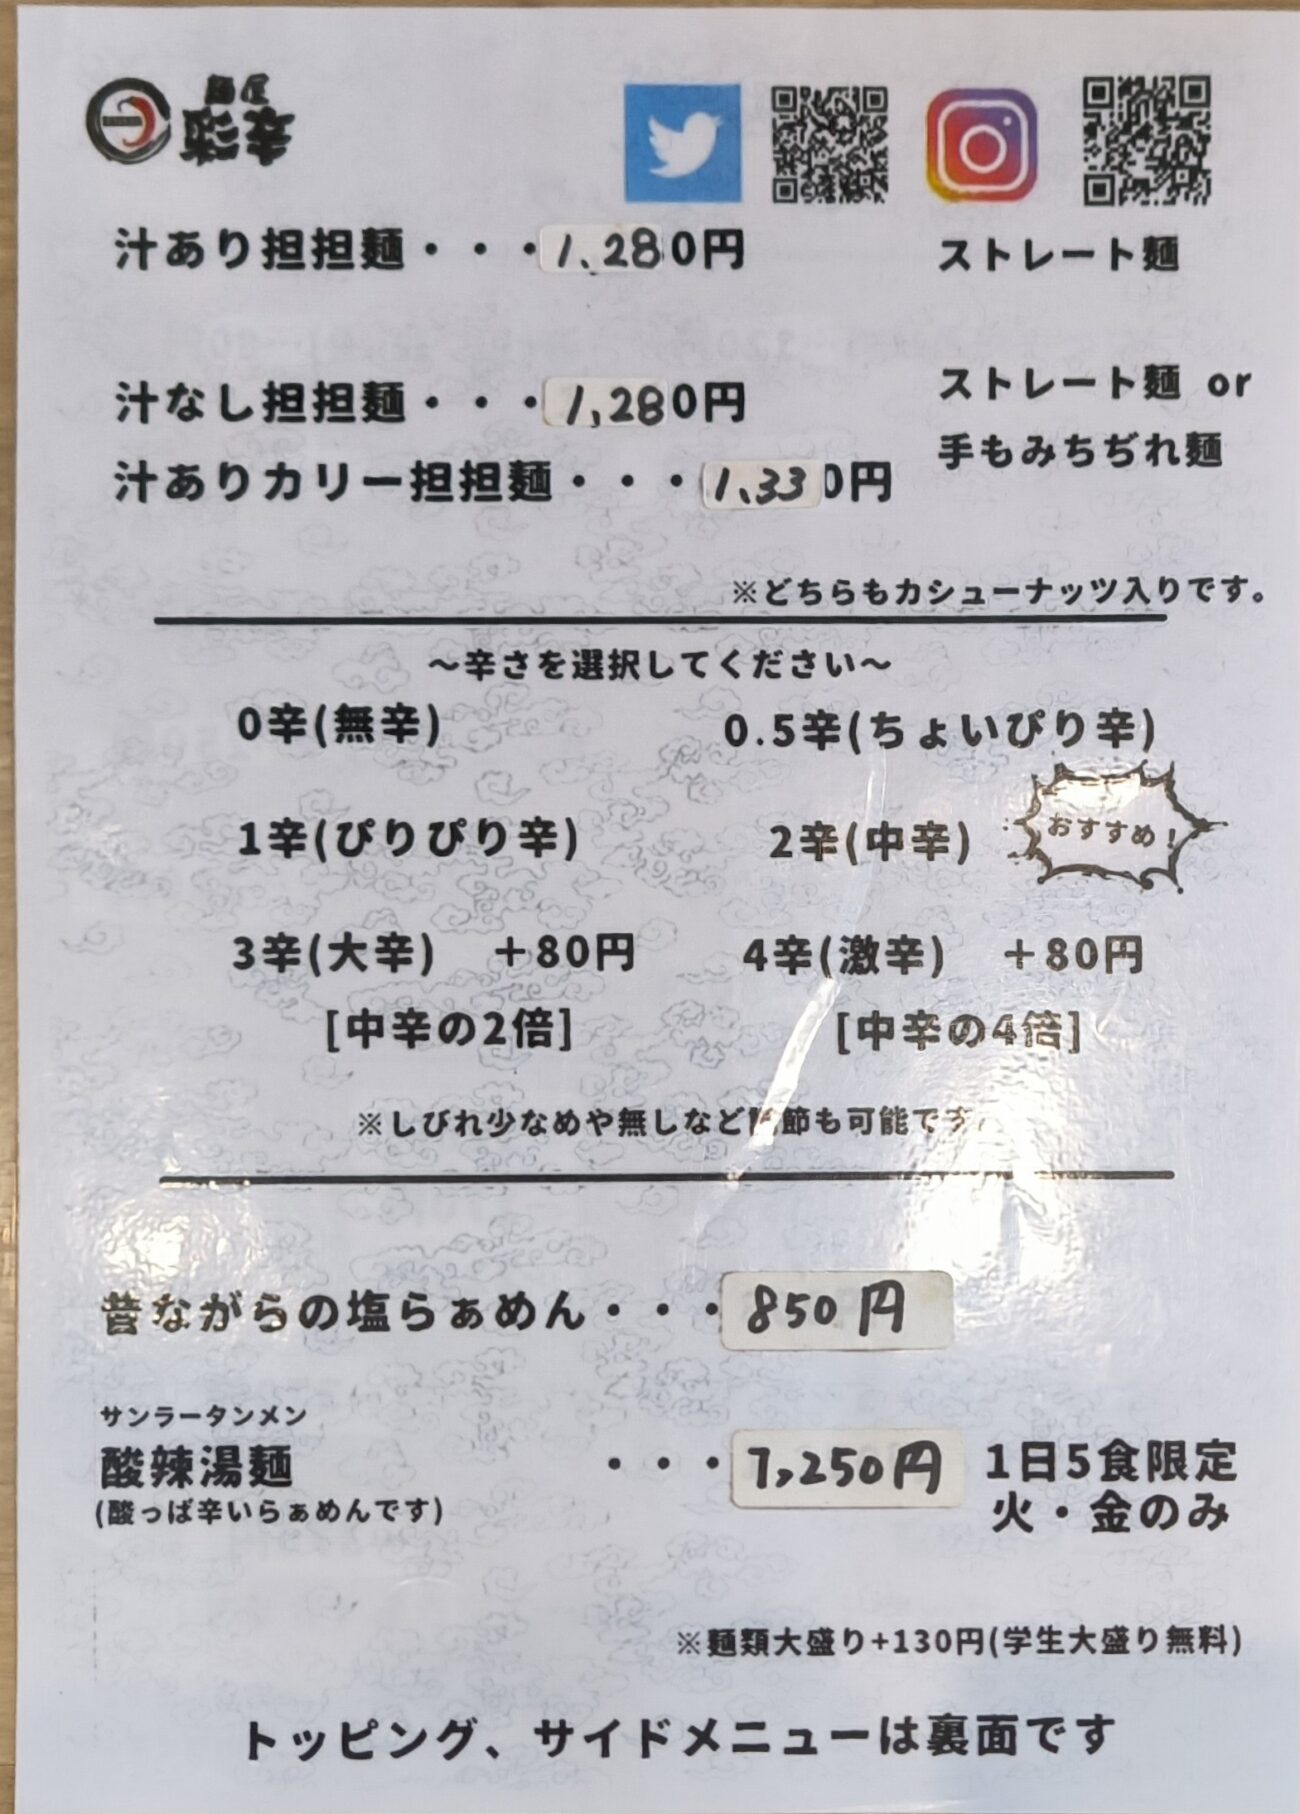 汁あり担担麺・・・1,280円 ストレート麺
汁なし担担麺・・・1,280円 ストレート麺 or
手もみちぢれ麺
汁ありカリー担担麺・・・1,330円
※どちらもカシューナッツ入りです。
～辛さを選択してください～
0辛(無辛) 0.5辛(ちょいぴり辛)
1辛(ぴりぴり辛) 2辛(中辛) おすすめ！
3辛(大辛) +80円 4辛(激辛) +80円
[中辛の2倍] [中辛の4倍]
※しびれ少なめや無しなど調節も可能です
昔ながらの塩らぁめん・・・850円
サンラータンメン
酸辣湯麺 ・・・1,250円 1日5食限定
(酸っぱ辛いらぁめんです) 火・金のみ
※麺類大盛り+130円(学生大盛り無料)
トッピング、サイドメニューは裏面です